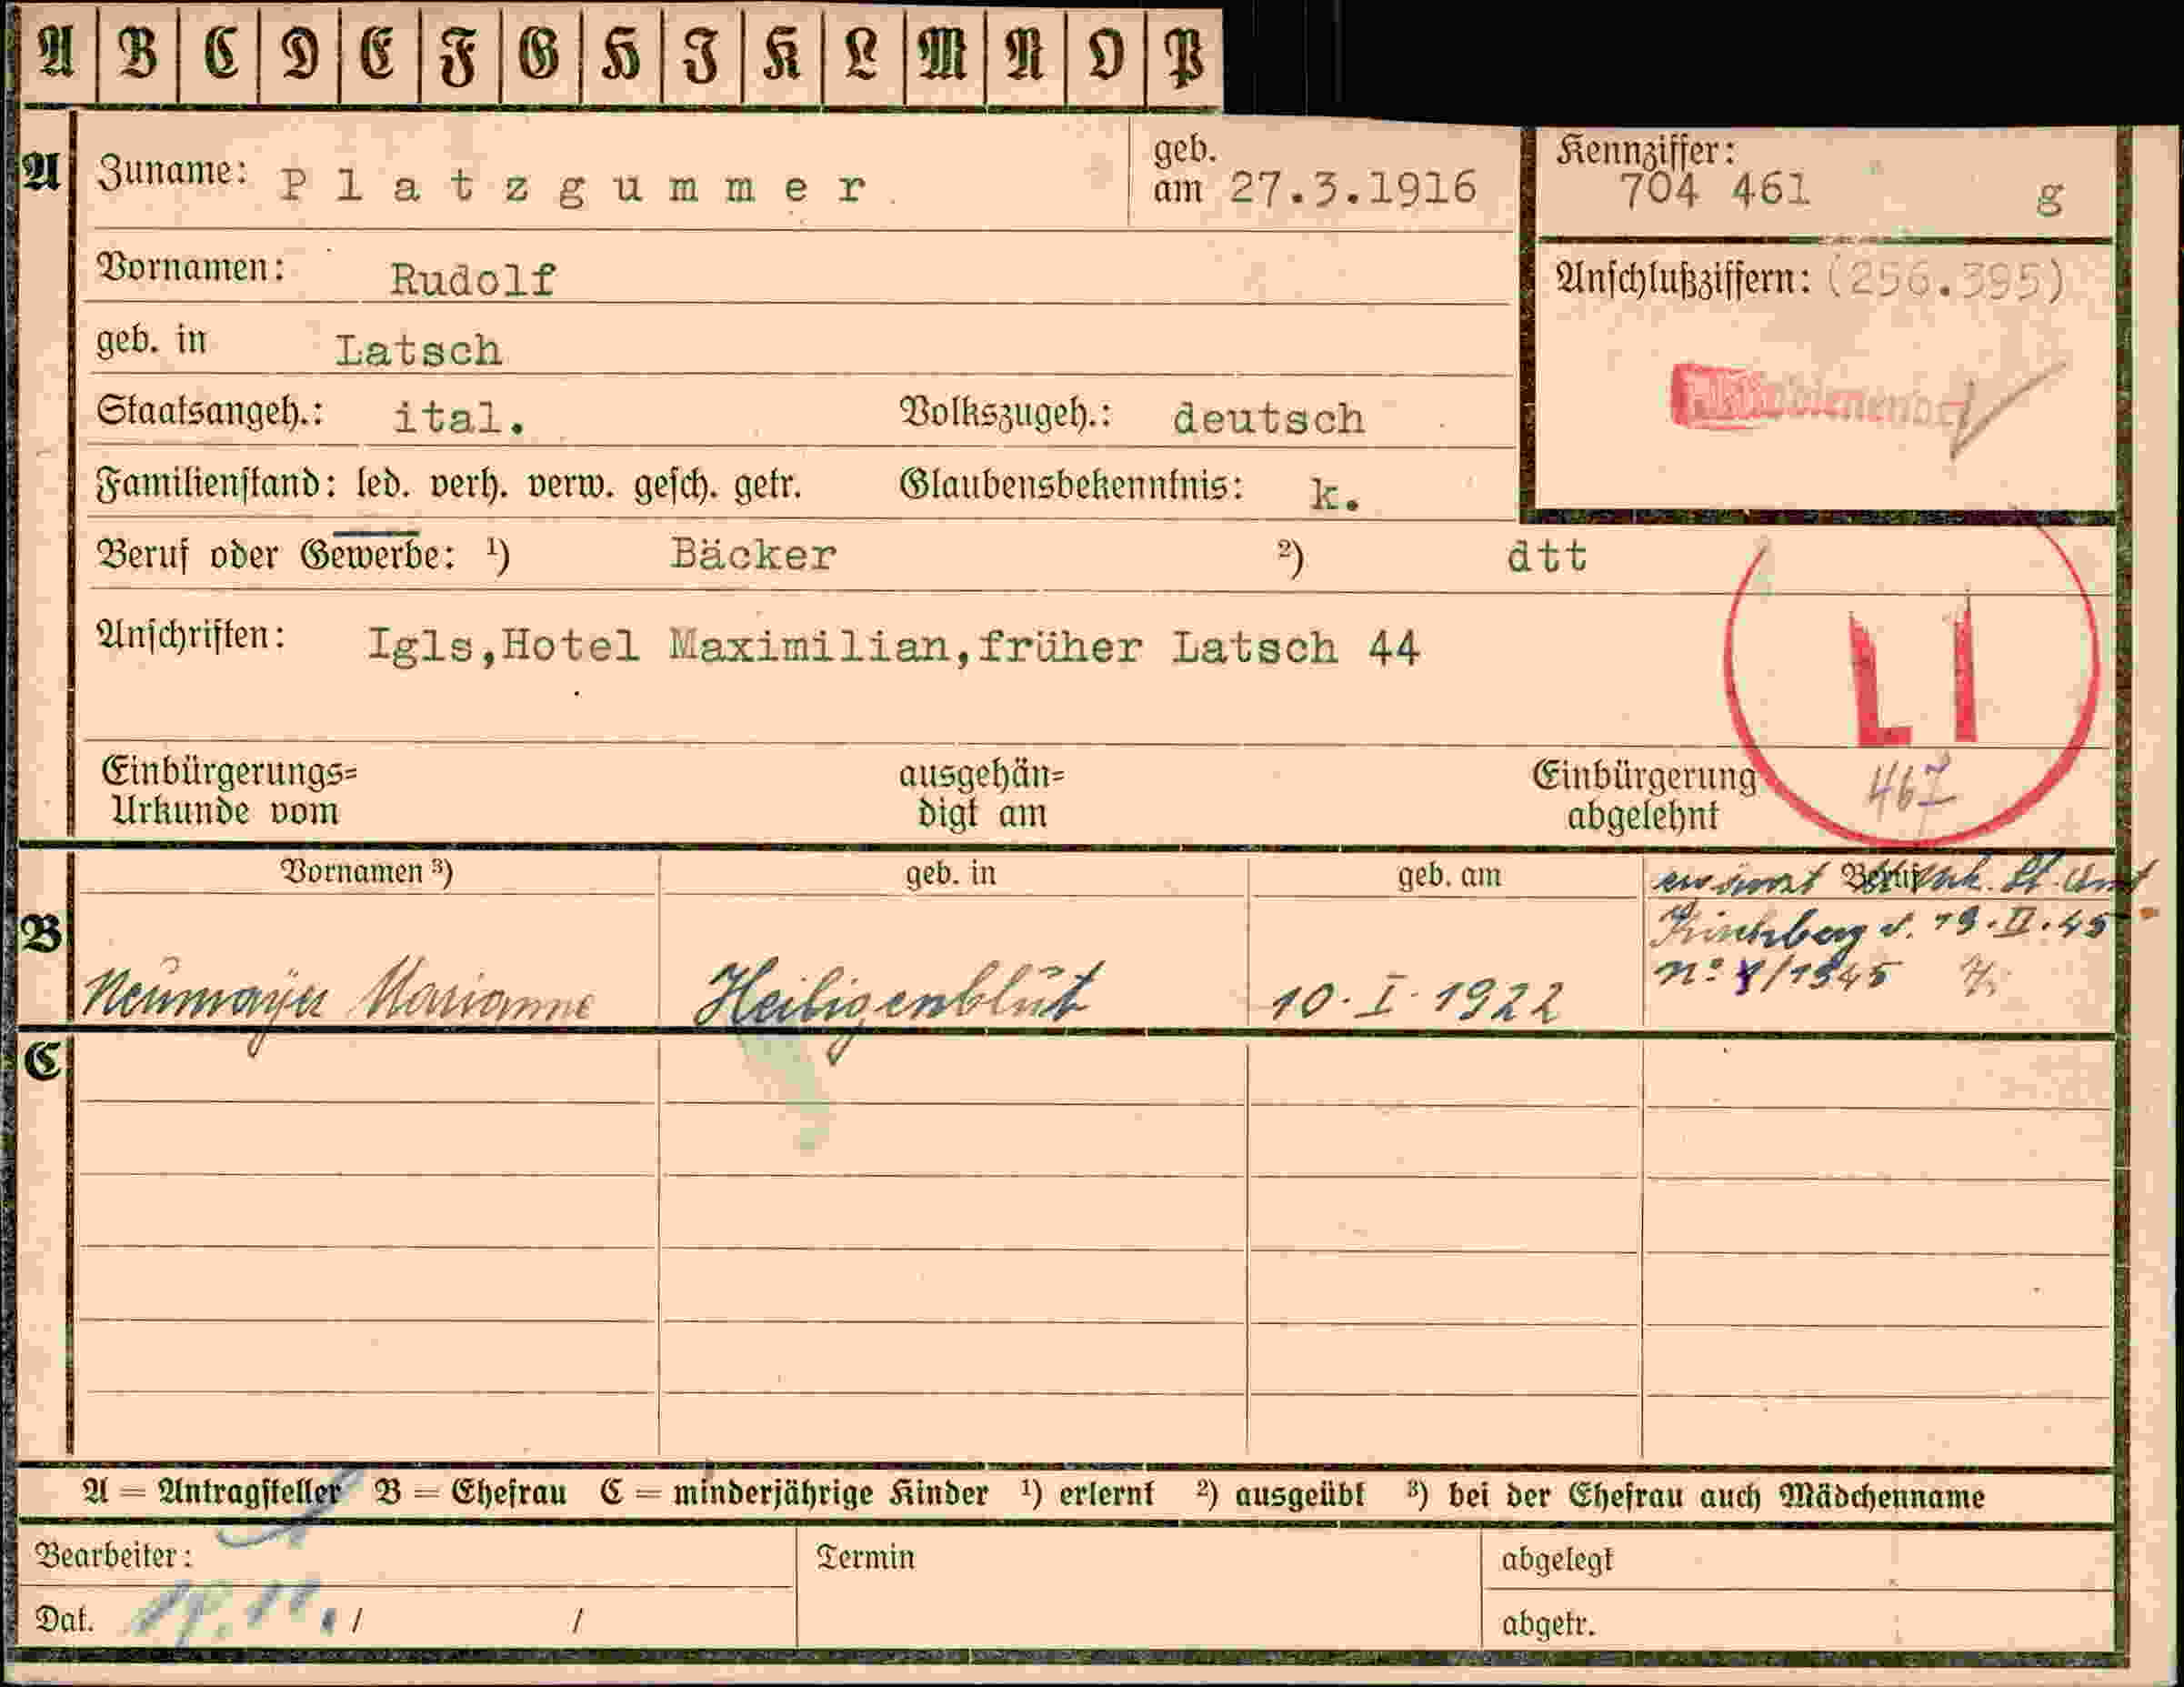 A B C D E F G H I K L M N O P
A Zuname: Platzgummer geb. am 27.3.1916
Kennziffer: 704 461 g
Vornamen: Rudolf
Anschlußziffern: (256.395)
geb. in Latsch
Staatsangeh.: ital. Volkszugeh.: deutsch
Familienstand: led. verh. verw. gesch. getr. Glaubensbekenntnis: k.
Beruf oder Gewerbe: ¹) Bäcker ²) dtt
Anschriften: Igls,Hotel Maximilian,früher Latsch 44
L I
467
Einbürgerungs= ausgehän= Einbürgerung
Urkunde vom digt am abgelehnt
B Vornamen ³) geb. in geb. am Beruf
Neumayer Marianne Heiligenblut 10. I. 1922
v. 19. II. 45
No /1945
C
A = Antragsteller B = Ehefrau C = minderjährige Kinder ¹) erlernt ²) ausgeübt ³) bei der Ehefrau auch Mädchenname
Bearbeiter: Termin abgelegt
Dat. / / abgetr.